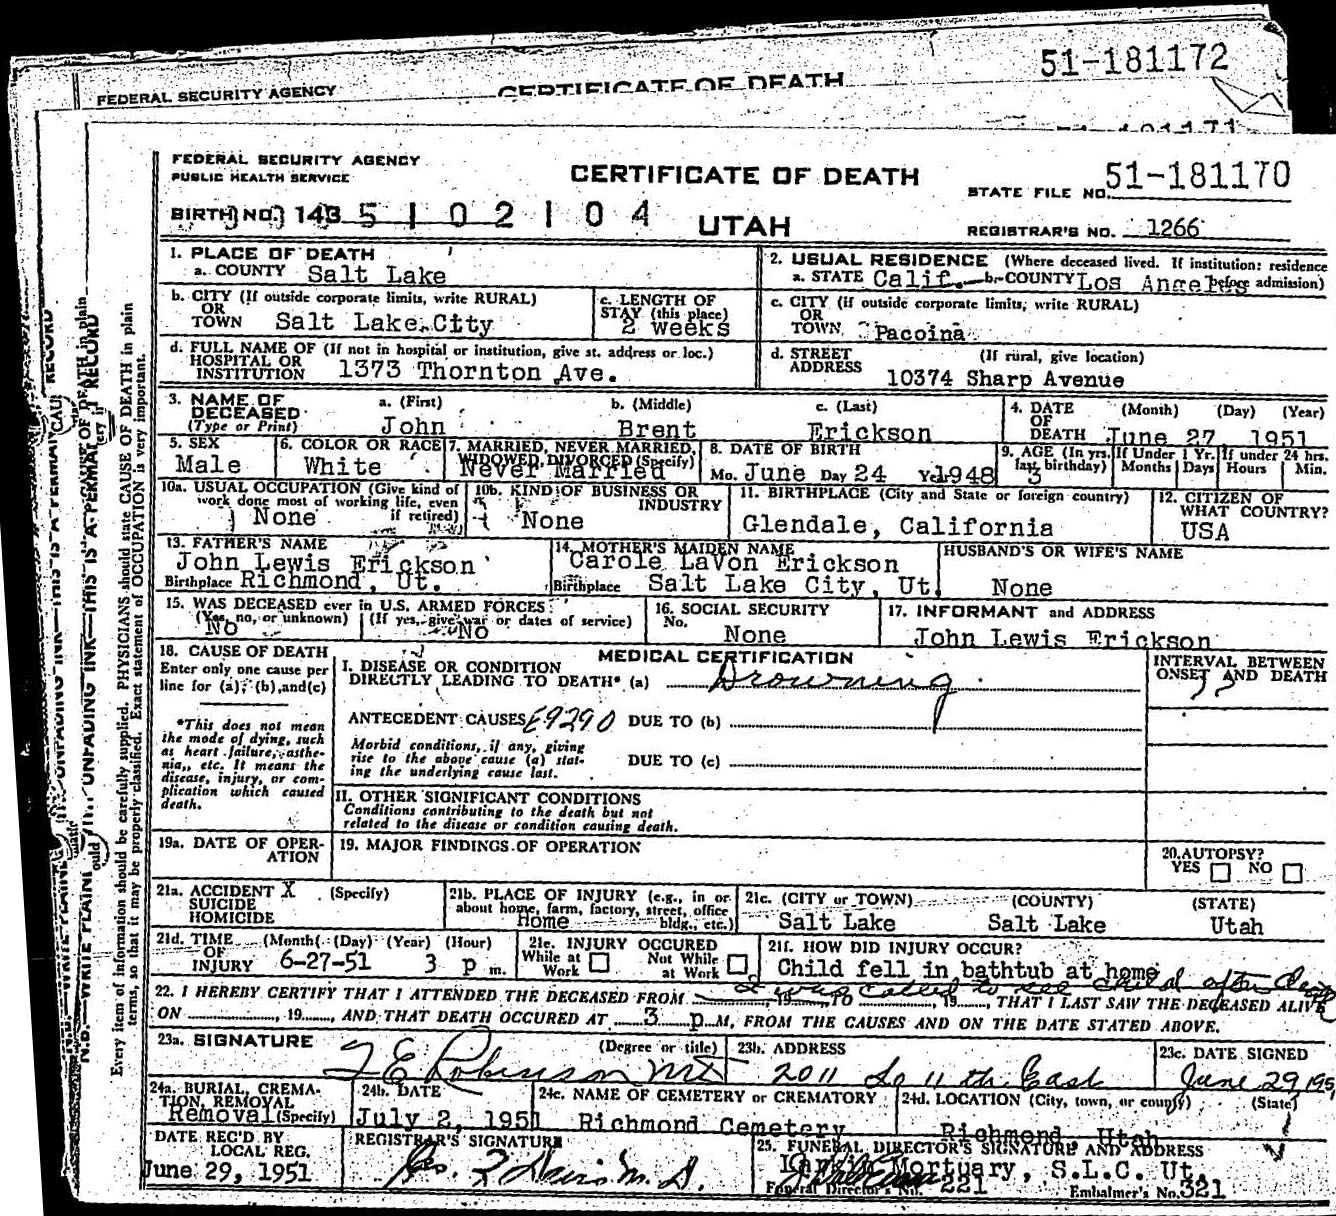 51-181172
FEDERAL SECURITY AGENCY CERTIFICATE OF DEATH
FEDERAL SECURITY AGENCY
PUBLIC HEALTH SERVICE
CERTIFICATE OF DEATH
STATE FILE NO. 51-181170
BIRTH NO. 143 5 1 0 2 1 0 4 UTAH
REGISTRAR'S NO. 1266
1. PLACE OF DEATH
a. COUNTY Salt Lake
2. USUAL RESIDENCE (Where deceased lived. If institution: residence before admission)
a. STATE Calif. b. COUNTY Los Angeles
b. CITY (If outside corporate limits, write RURAL)
OR
TOWN Salt Lake City
c. LENGTH OF
STAY (this place)
2 weeks
c. CITY (if outside corporate limits, write RURAL)
OR
TOWN Pacoina
d. FULL NAME OF (If not in hospital or institution, give st. address or loc.)
HOSPITAL OR
INSTITUTION 1373 Thornton Ave.
d. STREET (If rural, give location)
ADDRESS 10374 Sharp Avenue
3. NAME OF
DECEASED
(Type or Print)
a. (First) b. (Middle) c. (Last)
John Brent Erickson
4. DATE (Month) (Day) (Year)
OF
DEATH June 27, 1951
5. SEX
Male
6. COLOR OR RACE
White
7. MARRIED, NEVER MARRIED,
WIDOWED, DIVORCED (Specify)
Never Married
8. DATE OF BIRTH
Mo. June Day 24 Yr. 1948
9. AGE (In yrs. last birthday) 3
If Under 1 Yr. Months Days
If under 24 hrs. Hours Min.
10a. USUAL OCCUPATION (Give kind of
work done most of working life, even
if retired)
None
10b. KIND OF BUSINESS OR
INDUSTRY
None
11. BIRTHPLACE (City and State or foreign country)
Glendale, California
12. CITIZEN OF
WHAT COUNTRY?
USA
13. FATHER'S NAME
John Lewis Erickson
Birthplace Richmond, Ut.
14. MOTHER'S MAIDEN NAME
Carole LaVon Erickson
Birthplace Salt Lake City, Ut.
HUSBAND'S OR WIFE'S NAME
None
15. WAS DECEASED ever in U.S. ARMED FORCES?
(Yes, no, or unknown) (If yes, give war or dates of service)
No No
16. SOCIAL SECURITY
No.
None
17. INFORMANT and ADDRESS
John Lewis Erickson
18. CAUSE OF DEATH
Enter only one cause per
line for (a), (b), and (c)
*This does not mean
the mode of dying, such
as heart failure, asthe-
nia, etc. It means the
disease, injury, or com-
plication which caused
death.
MEDICAL CERTIFICATION
I. DISEASE OR CONDITION
DIRECTLY LEADING TO DEATH* (a) Drowning
ANTECEDENT CAUSES E9290 DUE TO (b)
Morbid conditions, if any, giving
rise to the above cause (a) stat-
ing the underlying cause last.
DUE TO (c)
INTERVAL BETWEEN
ONSET AND DEATH
II. OTHER SIGNIFICANT CONDITIONS
Conditions contributing to the death but not
related to the disease or condition causing death.
19a. DATE OF OPER-
ATION
19. MAJOR FINDINGS OF OPERATION
20. AUTOPSY?
YES NO
21a. ACCIDENT X (Specify)
SUICIDE
HOMICIDE
21b. PLACE OF INJURY (e.g., in or
about home, farm, factory, street, office
bldg., etc.)
Home
21c. (CITY or TOWN) (COUNTY) (STATE)
Salt Lake Salt Lake Utah
21d. TIME (Month) (Day) (Year) (Hour)
OF
INJURY 6-27-51 3 p m.
21e. INJURY OCCURED
While at Work Not While at Work
21f. HOW DID INJURY OCCUR?
Child fell in bathtub at home
I was called to see child after death
22. I HEREBY CERTIFY THAT I ATTENDED THE DECEASED FROM, 19 TO, 19, THAT I LAST SAW THE DECEASED ALIVE
ON, 19, AND THAT DEATH OCCURED AT 3 p.M, FROM THE CAUSES AND ON THE DATE STATED ABOVE.
23a. SIGNATURE (Degree or title)
T E Robinson MD
23b. ADDRESS
2011 So 11 th East
23c. DATE SIGNED
June 29 195
24a. BURIAL, CREMA-
TION, REMOVAL
Removal (Specify)
24b. DATE
July 2, 1951
24c. NAME OF CEMETERY or CREMATORY
Richmond Cemetery
24d. LOCATION (City, town, or county) (State)
Richmond, Utah
DATE REC'D BY
LOCAL REG.
June 29, 1951
REGISTRAR'S SIGNATURE
25. FUNERAL DIRECTOR'S SIGNATURE AND ADDRESS
Mortuary, S.L.C. Ut.
Funeral Director's No. 221 Embalmer's No. 321
Every item of information should be carefully supplied. PHYSICIANS should state CAUSE OF DEATH in plain
terms, so that it may be properly classified. Exact statement of OCCUPATION is very important.